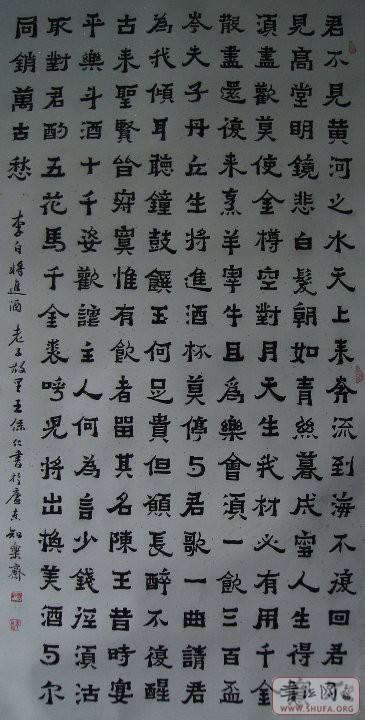 君不見黃河之水天上来奔流到海不復回君
見高堂明鏡悲白髮朝如青絲暮成雪人生得
湏盡歡莫使金樽空對月天生我材必有用千金
散盡還復来烹羊宰牛且為樂會湏一飲三百盃
岑夫子丹丘生將進酒杯莫停与君歌一曲請君
為我傾耳聽鐘鼓饌玉何足貴但願長醉不復醒
古来聖賢皆寂寞惟有飲者留其名陳王昔時宴
平樂斗酒十千姿歡謔主人何為言少錢徑湏沽
取對君酌五花馬千金裘呼兒將出換美酒与尔
同銷萬古愁
李白將進酒 老子故里王保仁書於唐京知樂齋
WWW.SHUFA.ORG